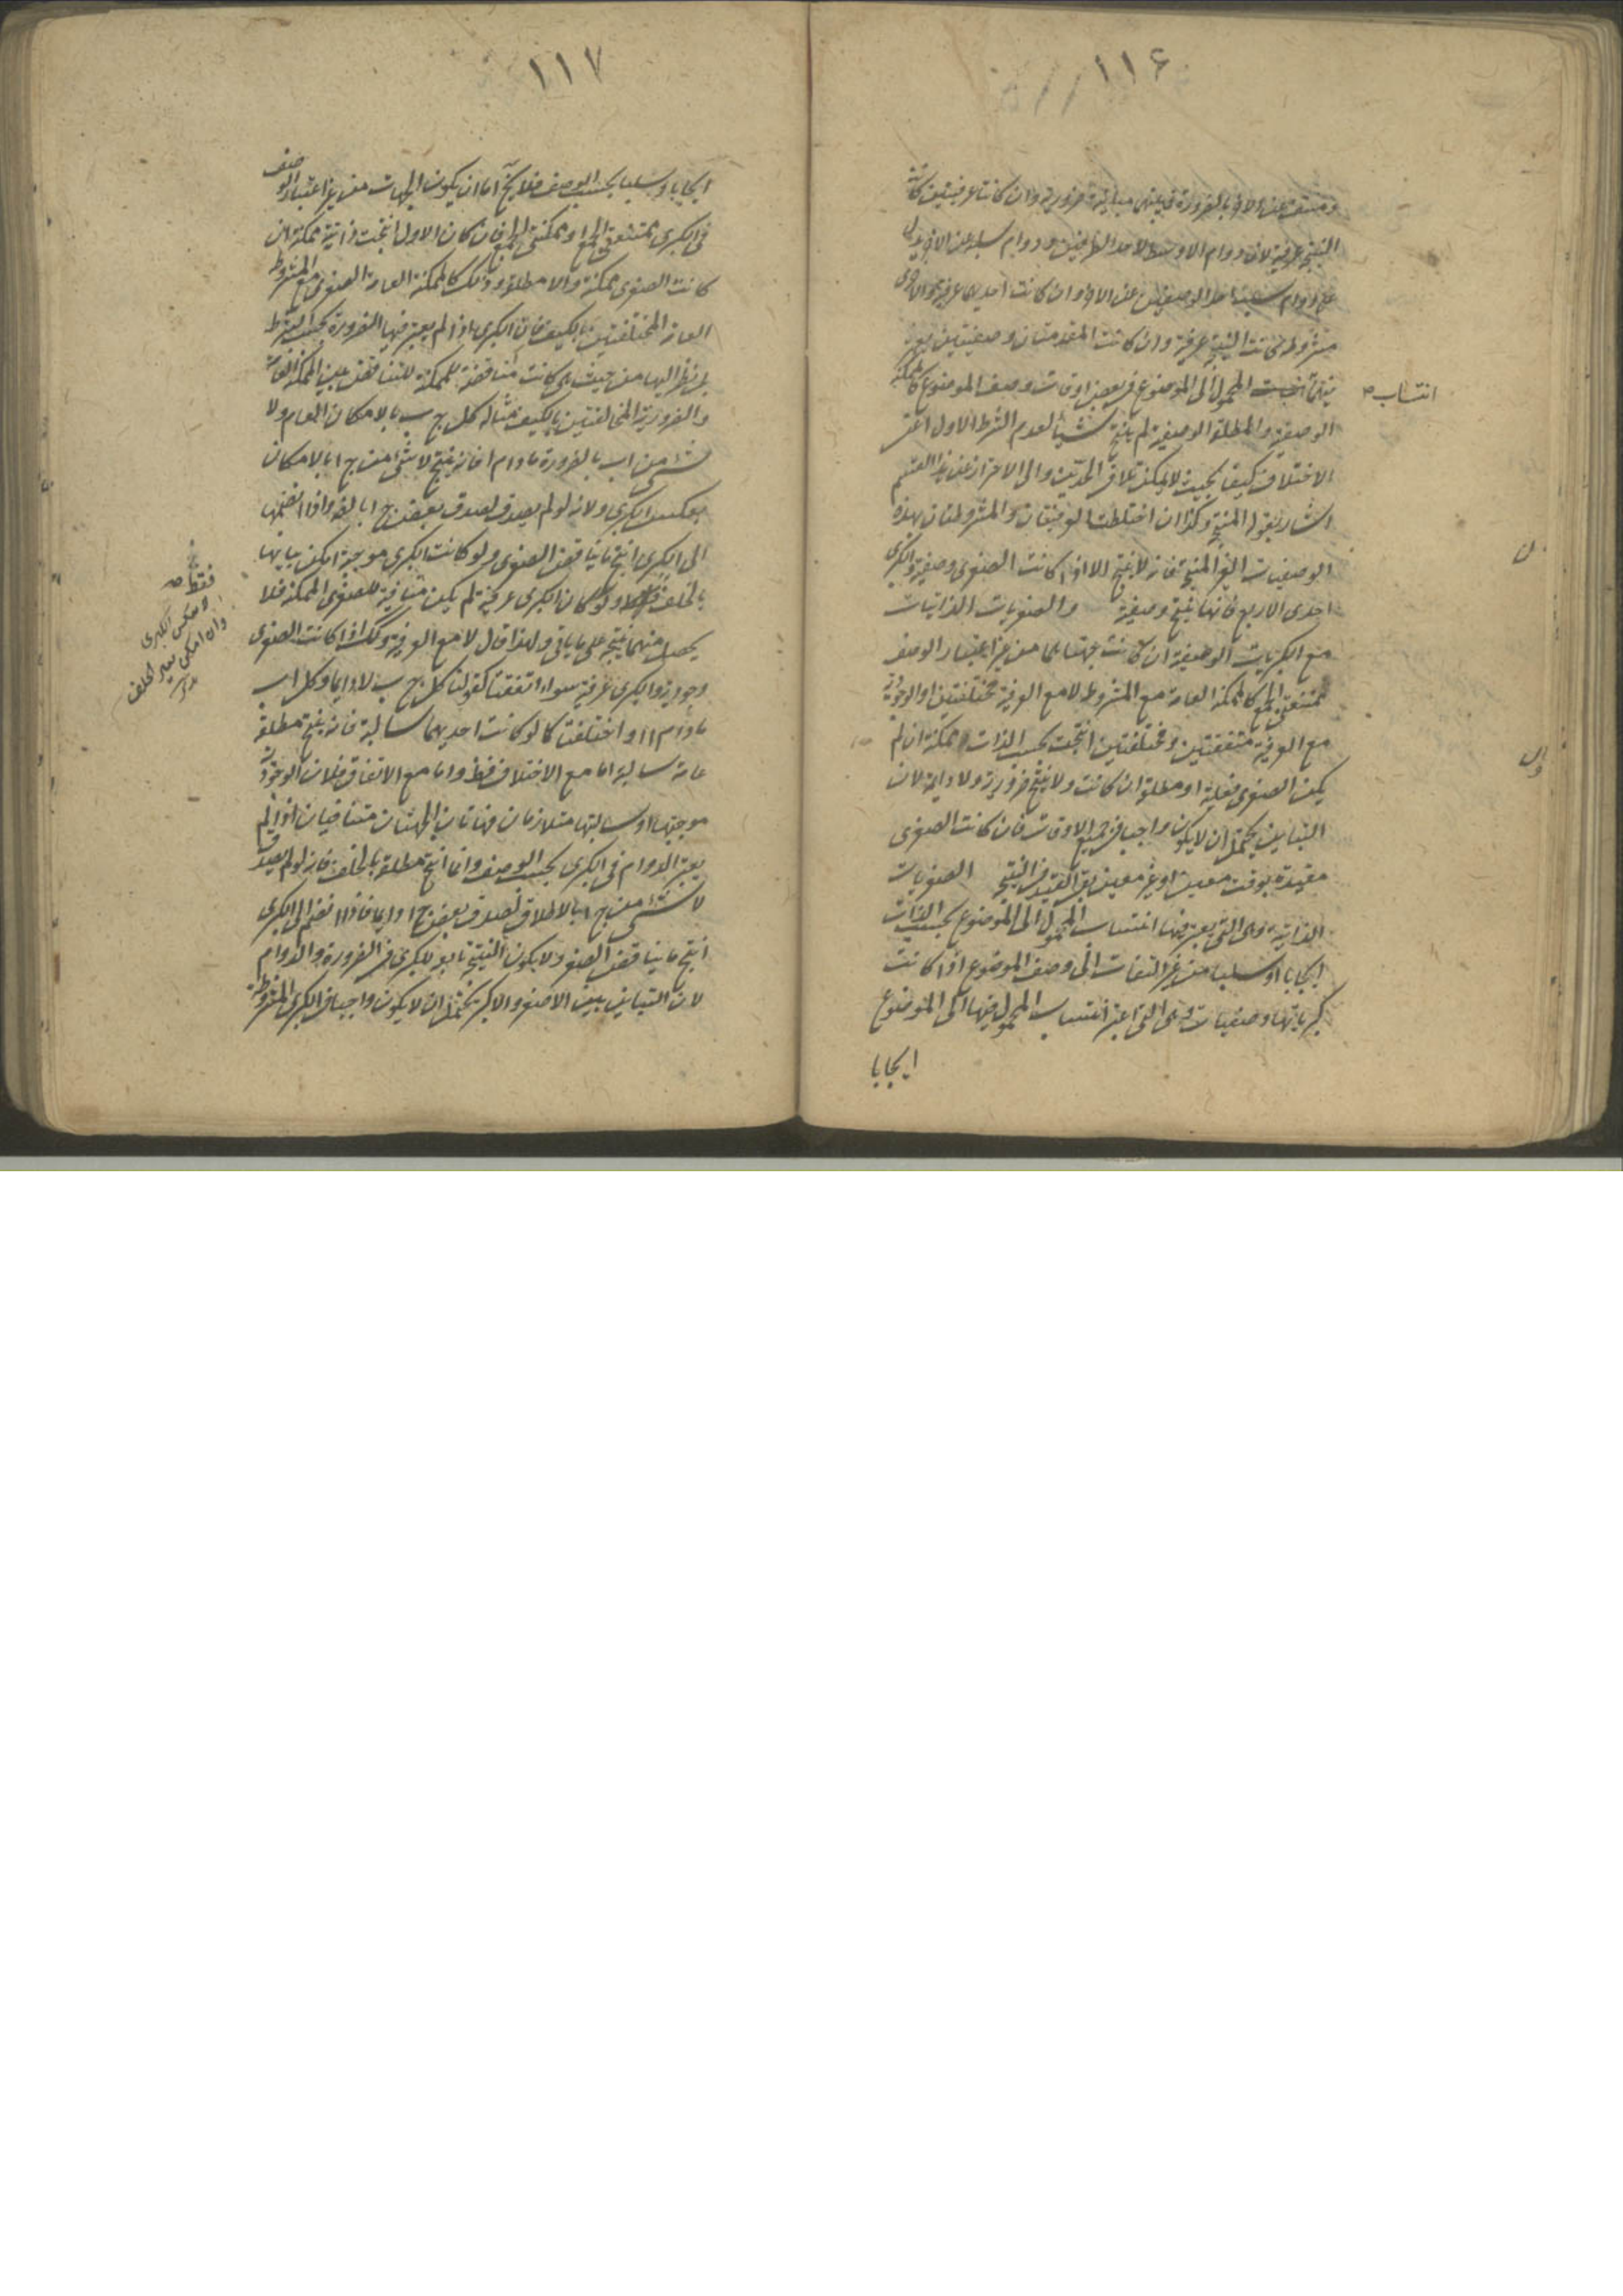 ١١٦
ومنتف عن الاخر بالضرورة فبينهما مباينة ضرورية وان كانتا عرفيتين كانت
النتيجة عرفية لان دوام الاوسط لاحد الطرفين ودوام سلبه عن الاخر يدل
على دوام سلب احد الوصفين عن الاخر وان كانت احديهما عرفية والاخرى
مشروطة كانت النتيجة عرفية وان كانت المقدمتان وصفيتين يعتبر
فيهما انتساب المحمول الى الموضوع في بعض اوقات وصف الموضوع كالممكنة
انتساب ص
الوصفية والمطلقة الوصفية لم ينتج شيئا لعدم الشرط الاول اعني
الاختلاف كيفا بحيث لا يمكن تلاقي المدتين والى الاحتراز عن هذا القسم
اشار بقوله المنتج وكذا ان اختلطت الوقتيتان والمشروطتان بهذه
الوصفيات الغير المنتجة فانه لا ينتج الا اذا كانت الصغرى وصفية والكبرى
احدى الاربع فانها ينتج وصفية والصغريات الذاتيات
مع الكبريات الوصفية ان كانت جهتاهما من غير اعتبار الوصف
ممتنعتي الجمع كالممكنة العامة مع المشروطة لا مع العرفية مختلفتين او الوجودية
مع العرفية متفقتين ومختلفتين انتجت بحسب الذات ممكنة ان لم
يكن الصغرى فعلية او مطلقة ان كانت ولا ينتج ضرورية ولا دائمة لان
التباين يحتمل ان لا يكون واجبا في جميع الاوقات فان كانت الصغرى
مقيدة بوقت معين او غير معين بقي القيد في النتيجة الصغريات
الذاتية وهي التي يعتبر فيها انتساب المحمول الى الموضوع بحسب الذات
ايجابا او سلبا من غير التفات الى وصف الموضوع اذا كانت
كبرياتها وصفيات وهي التي اعتبر انتساب المحمول فيها الى الموضوع
ايجابا
١١٧
ايجابا وسلبا بحسب الوصف فلا يخ اما ان يكون الجهات من غير اعتبار الوصف
في الكبرى ممتنعتي الجمع او ممكنتي الجمع فان كان الاول انتجت ذاتية ممكنة ان
كانت الصغرى ممكنة والا مطلقة وذلك كالممكنة العامة الصغرى مع المشروطة
العامة المختلفتين بالكيف فان الكبرى اذا لم يعتبر فيها الضرورة بحسب الشرط
بل نظر اليها من حيث هي كانت مناقضة للممكنة للتناقض بين الممكنة العامة
والضرورية المخالفتين بالكيف مثاله كل ج ب بالامكان العام ولا
شئ من ا ب بالضرورة مادام ا فانه ينتج لا شئ من ج ا بالامكان
بعكس الكبرى ولانه لو لم يصدق لصدق بعض ج ا بالضرورة واذا انضم
الى الكبرى انتج ما يناقض الصغرى ولو كانت الكبرى موجبة امكن بيانها
بالخلف ولو كان الكبرى عرفية لم يكن منافية للصغرى الممكنة فلا
فقط ص
وبعكس الكبرى
وان امكن بغير الخلف
يحصل منهما نتيجة على ما ياتي ولهذا قال لا مع العرفية وكذلك اذا كانت الصغرى
وجودية والكبرى عرفية سواء اتفقتا كقولنا كل ج ب لا دائما وكل ا ب
مادام ا او اختلفتا كما لو كانت احديهما سالبة فانه ينتج مطلقة
عامة سالبة اما مع الاختلاف فظ واما مع الاتفاق فلان الوجودية
موجبتها وسالبتها متلازمان فهاتان الجهتان متنافيتان اذا لم
يعتبر الدوام في الكبرى بحسب الوصف وانما انتج مطلقة بالخلف فانه لو لم يصدق
لا شئ من ج ا بالاطلاق لصدق بعض ج ا دائما فاذا انضم الى الكبرى
انتج ما يناقض الصغرى ولا يكون النتيجة تابعة للكبرى في الضرورة والدوام
لان التباين بين الاصغر والاكبر يحتمل ان لا يكون واجبا في الكبرى المشروطة